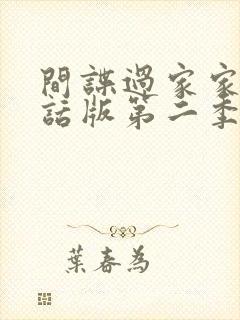 間諜過家家
話版第二季
葉春為